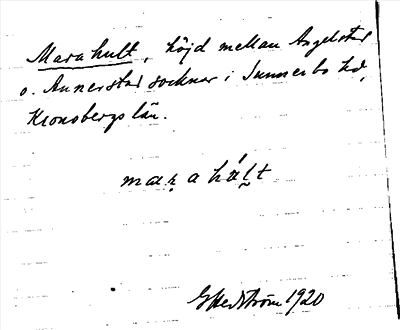 Marahult, höjd mellan Angelstad
o. Annerstad socknar i Sunnerbo hd,
Kronobergs län.
maṛahál̰t
GHedström 1920